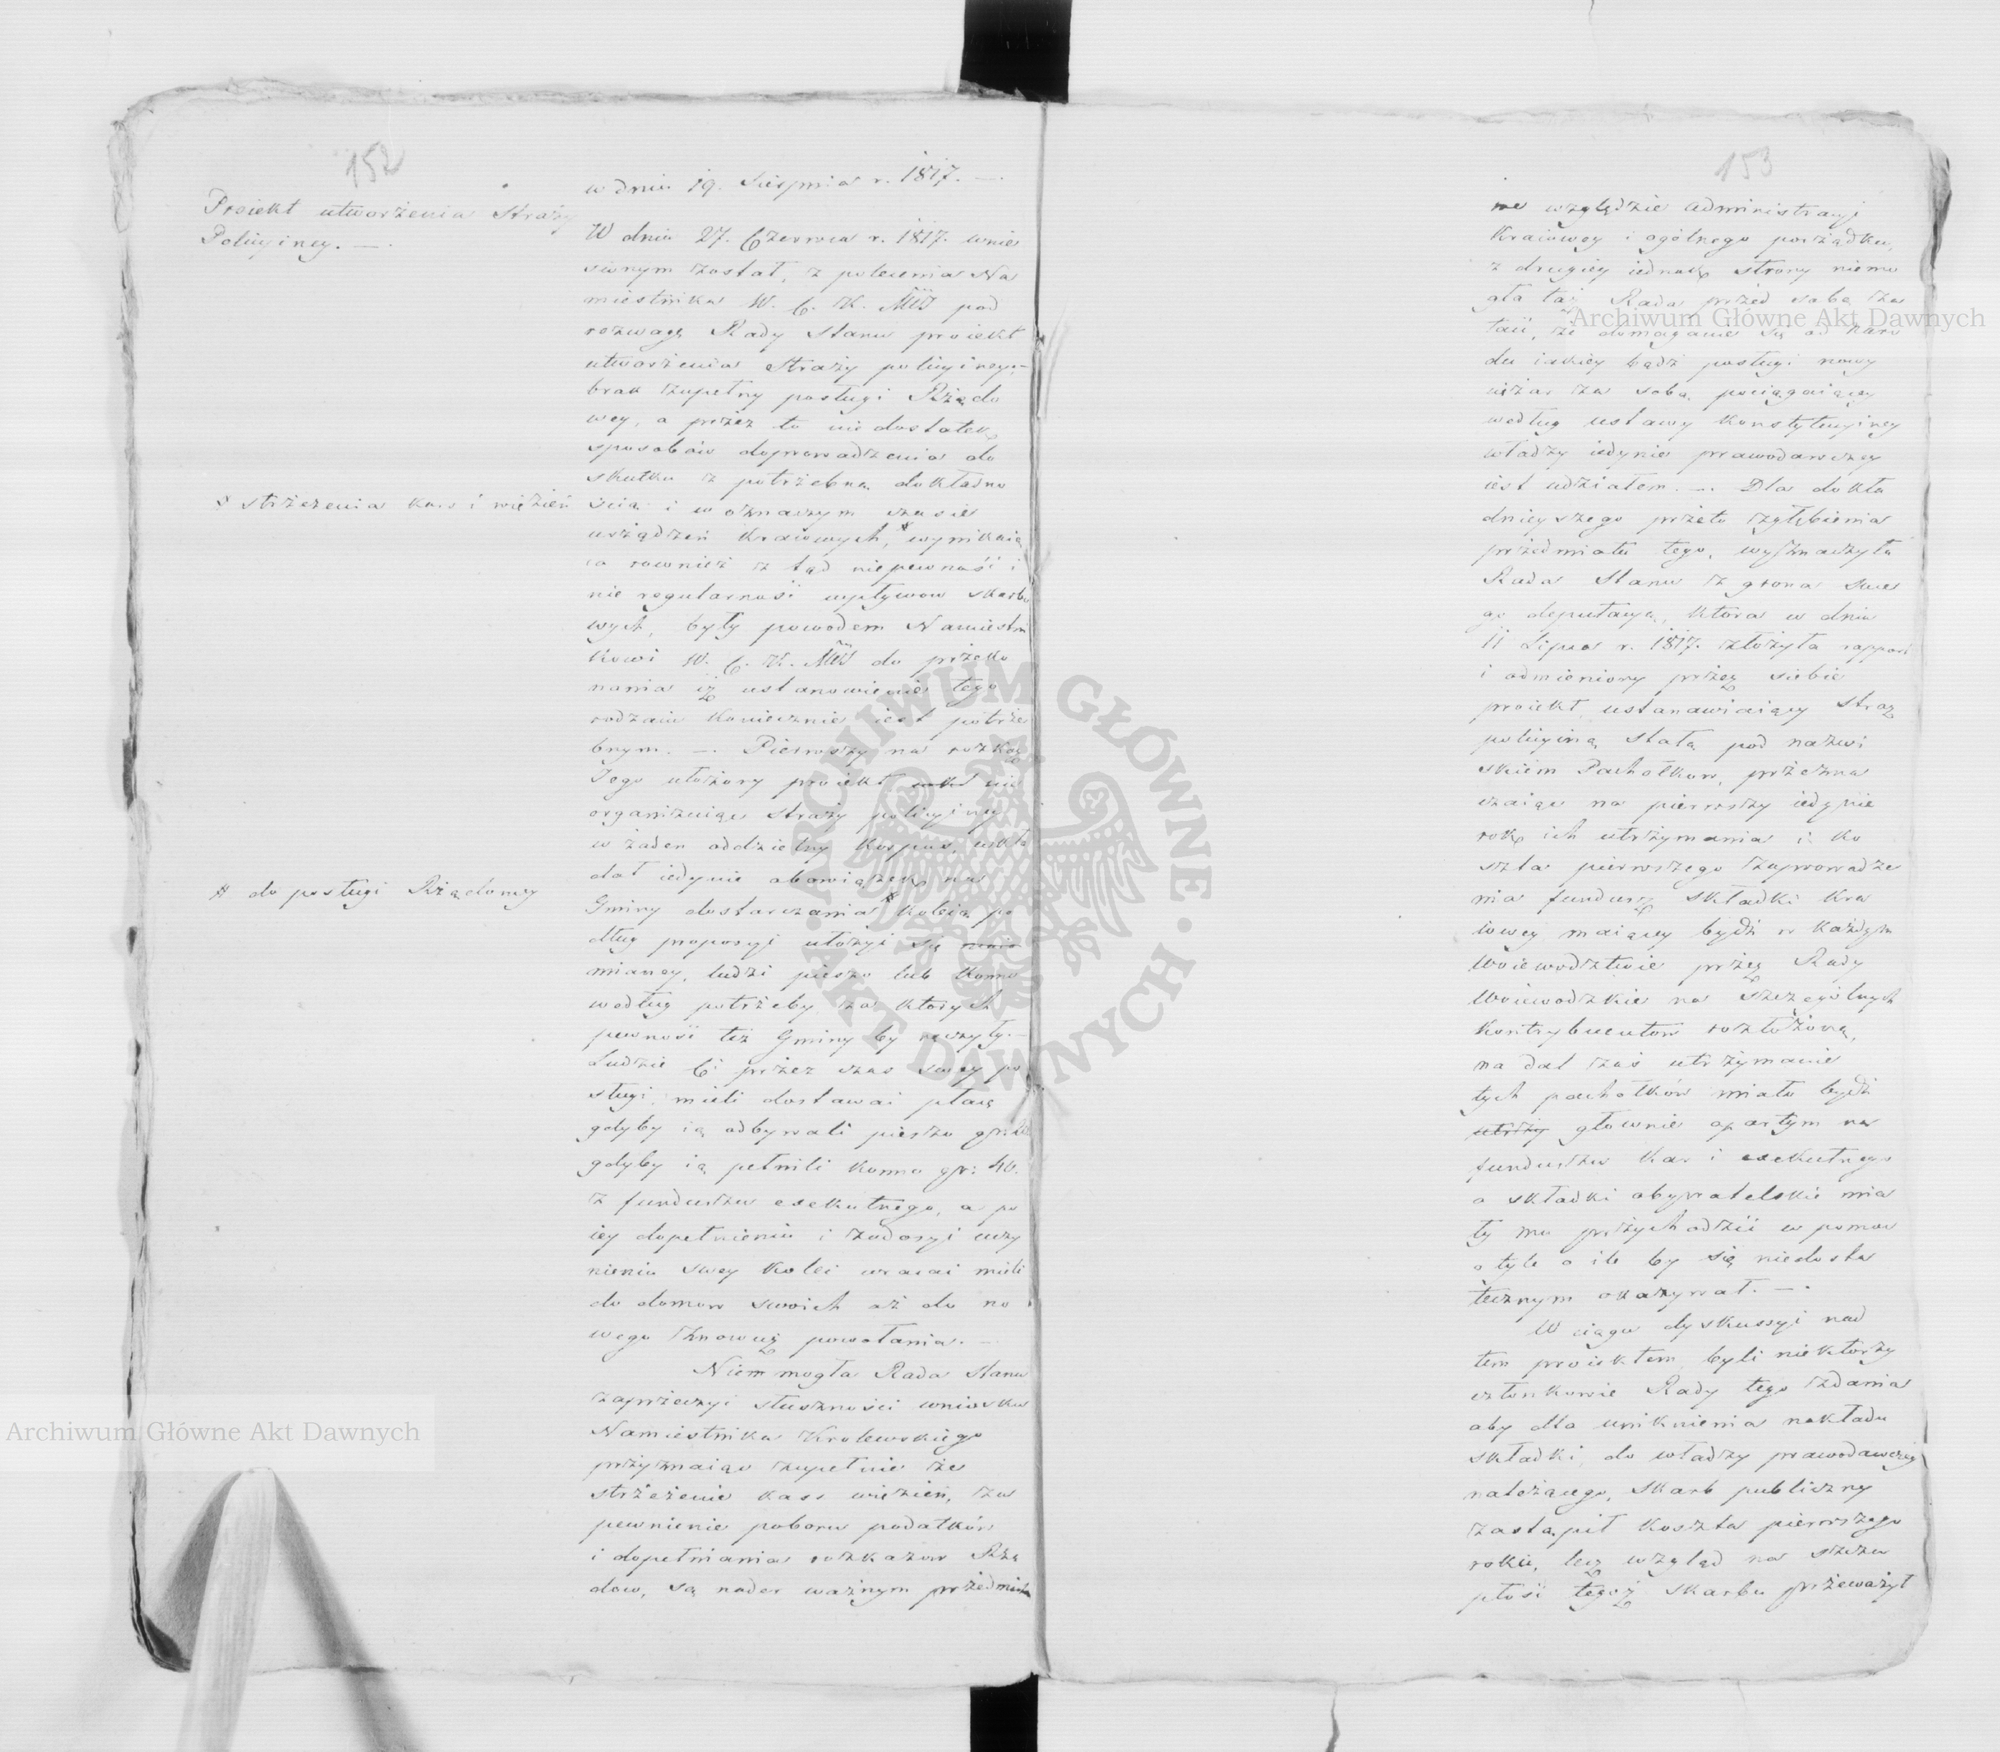 152
w dniu 19. Sierpnia r. 1817. —.
Proiekt utworzenia Straży
Policyiney. —.
W dniu 27. Czerwca r. 1817. wnie
sionym został, z polecenia Na
miestnika W. C. K. Mści pod
rozwagę Rady Stanu proiekt
utworzenia Straży policyiney.—
brak zupełny posługi Rządo
wey, a przez to niedostatek
sposobów doprowadzenia do
skutku z potrzebną dokładno
ścią i w oznaczym czasie
urządzeń Kraiowych, * wynikaią
* strzeżenia kass i więzień
ca rownież z tąd niepewność i
nie regularność wpływow skarbo
wych, były powodem Namiestni
kowi W. C. K. Mści do przeko
nania iż ustanowienie tego
rodzaiu koniecznie iest potrze
bnym. —. Pierwszy na rozkaz
Jego ułożony proiekt nie
organizuiąc straży policyiney
w żaden oddzielny korpus, wkła
dał iedynie obowiązek na
Gminy dostarczania # koleią po
# do posługi Rządowey
dług proporcyi ułożyć się
mianey, ludzi pieszo lub konno
według potrzeby za których
pewność też Gminy by ręczyły.—
Ludzie Ci przez czas swey po
sługi, mieli dostawać płacę
gdyby ią odbywali pieszo gr:
gdyby ią pełnili konno gr: 40.
z funduszu exekutnego, a po
iey dopełnieniu i zadosyć uczy
nieniu swey kolei wracać mieli
do domow swoich aż do no
wego znowuż powołania. —
Niemmogła Rada Stanu
zaprzeczyć słuszności wniosku
Namiestnika Krolewskiego
przyznaiąc zupełnie że
strzeżenie kass więzień, za
pewnienie poboru podatków
i dopełniania rozkazow Rzą
dow, są nader ważnym przedmiotem
153
we względzie administracyi
Kraiowey i ogólnego porządku,
z drugiey iednak strony niemo
gła taż Rada przed sobą za
taić, że domaganie się od naro
du iakiey bądź posługi nowy
ciężar za sobą pociągaiącey
według ustawy Konstytucyiney
władzy iedynie prawodawczey
iest udziałem. —. Dla dokła
dnieyszego przeto zgłębienia
przedmiotu tego, wyznaczyła
Rada Stanu z grona swe
go deputacyą, która w dniu
11 Lipca r. 1817. złożyła rapport
i odmieniony przez siebie
proiekt ustanawiaiący Straż
policyiną stałą pod nazwi
skiem Pachołkow, przezna
czaiąc na pierwszy iedynie
rok ich utrzymania i ko
szta pierwszego zaprowadze
nia fundusz składki Kra
iowey maiącey bydź w każdym
Woiewodztwie przez Rady
Woiewodzkie na szczególnych
Kontrybuentow rozłożoną,
na dal zaś utrzymanie
tych pachołków miało bydź
utrzy głownie opartym na
funduszu kar i exekutnego
a składki obywatelskie mia
ły mu przychodzić w pomoc
o tyle o ile by się niedosta
tecznym okazywał. —.
W ciągu dyskussyi nad
tem proiektem, byli niektorzy
członkowie Rady tego zdania
aby dla uniknienia nakładu
składki, do władzy prawodawczey
należącego, skarb publiczny
zastąpił koszta pierwszego
roku, lecz wzgląd na szczu
płość tegoż skarbu przeważył
Archiwum Główne Akt Dawnych
Archiwum Główne Akt Dawnych
ARCHIWUM GŁÓWNE
AKT DAWNYCH